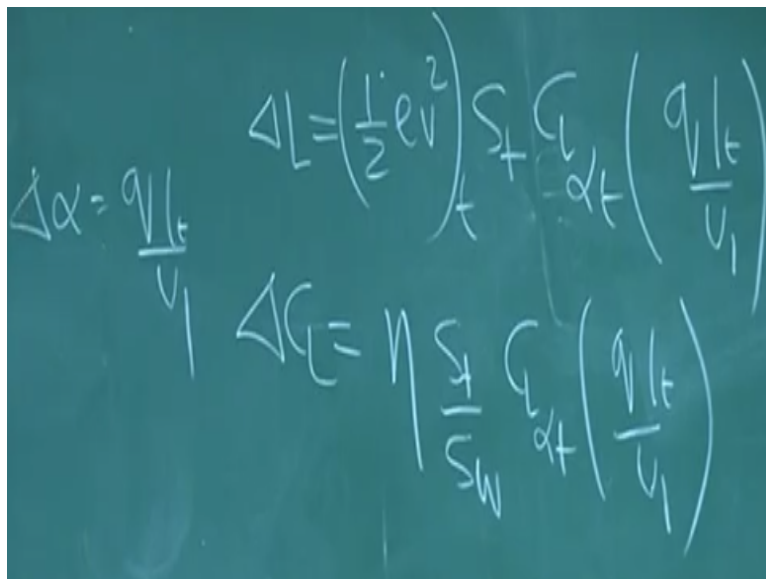 Δα = q l_t / U_1
ΔL = (1/2 ρv²)_t S_t C_L_αt (q l_t / U_1)
ΔC_L = η S_t / S_w C_L_αt (q l_t / U_1)